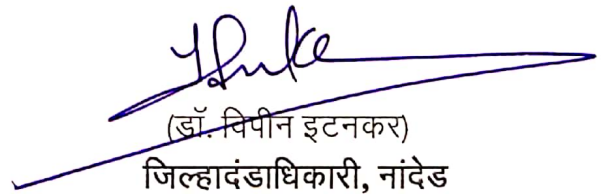 (डॉ. विपीन इटनकर)
जिल्हादंडाधिकारी, नांदेड